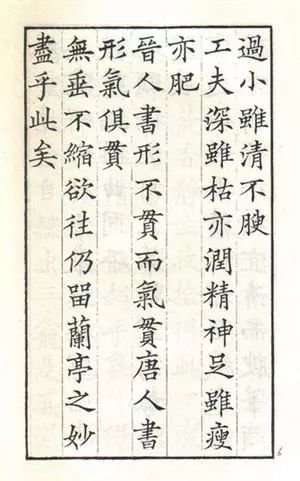 過小雖清不腴
工夫深雖枯亦潤精神足雖瘦
亦肥
晉人書形不貫而氣貫唐人書
形氣俱貫
無垂不縮欲往仍留蘭亭之妙
盡乎此矣
6